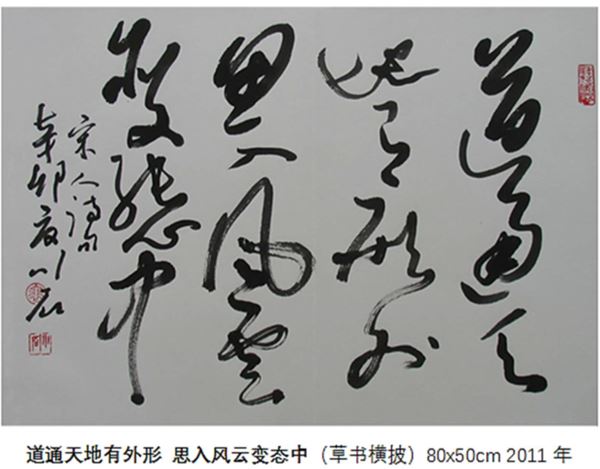 道通天
地有形外
思入風雲
變態中
宋人詩句
辛卯夏
道通天地有外形 思入风云变态中（草书横披）80x50cm 2011 年